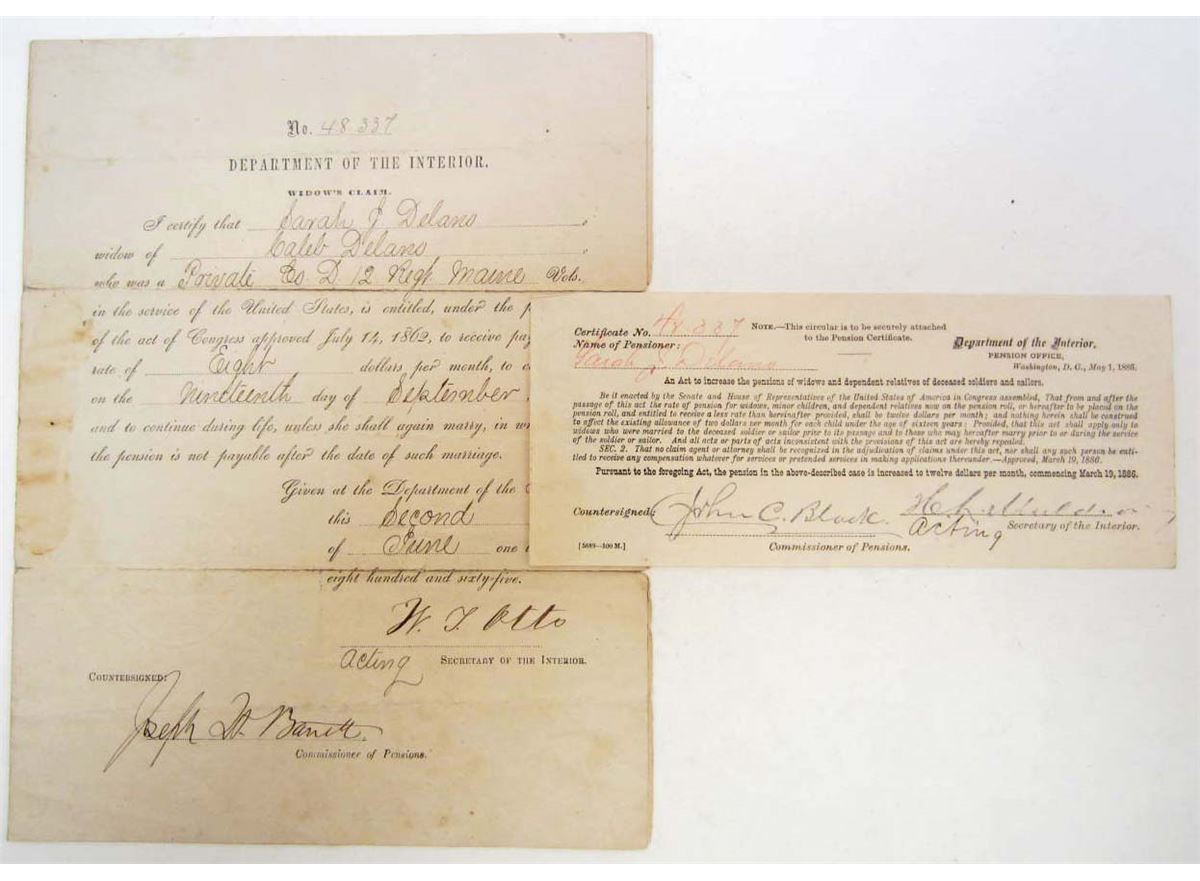 No. 48 337
DEPARTMENT OF THE INTERIOR.
WIDOW'S CLAIM.
I certify that Sarah J Delano
widow of Caleb Delano
who was a Private Co. D. 12 Regt. Maine Vols.
in the service of the United States, is entitled, under the
of the act of Congress approved July 14, 1862, to receive
rate of Eight dollars, per month, to
on the Nineteenth day of September
and to continue during life, unless she shall again marry, in
the pension is not payable after the date of such marriage.
Given at the Department of the
this Second
of June one
eight hundred and sixty-five.
W. T. Otto
Acting SECRETARY OF THE INTERIOR.
COUNTERSIGNED:
Joseph H. Barrett
Commissioner of Pensions.
Certificate No. 48.337
Name of Pensioner:
Sarah J. Delano
NOTE.—This circular is to be securely attached
to the Pension Certificate.
Department of the Interior,
PENSION OFFICE,
Washington, D. C., May 1, 1886.
An Act to increase the pensions of widows and dependent relatives of deceased soldiers and sailors.
Be it enacted by the Senate and House of Representatives of the United States of America in Congress assembled, That from and after the
passage of this act the rate of pension for widows, minor children, and dependent relatives now on the pension roll, or hereafter to be placed on the
pension roll, and entitled to receive a less rate than hereinafter provided, shall be twelve dollars per month; and nothing herein shall be construed
to affect the existing allowance of two dollars per month for each child under the age of sixteen years: Provided, that this act shall apply only to
widows who were married to the deceased soldier or sailor prior to its passage and to those who may hereafter marry prior to or during the service
of the soldier or sailor. And all acts or parts of acts inconsistent with the provisions of this act are hereby repealed.
SEC. 2. That no claim agent or attorney shall be recognized in the adjudication of claims under this act, nor shall any such person be enti-
tled to receive any compensation whatever for services or pretended services in making applications thereunder.—Approved, March 19, 1886.
Pursuant to the foregoing Act, the pension in the above-described case is increased to twelve dollars per month, commencing March 19, 1886.
Countersigned: John C. Black.
Acting Secretary of the Interior.
[5689—100 M.]
Commissioner of Pensions.